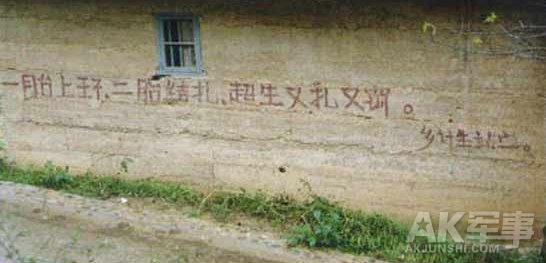 一胎上环、二胎结扎、超生又扎又罚。
乡计生办宣。
AK军事
AKJUNSHI.COM